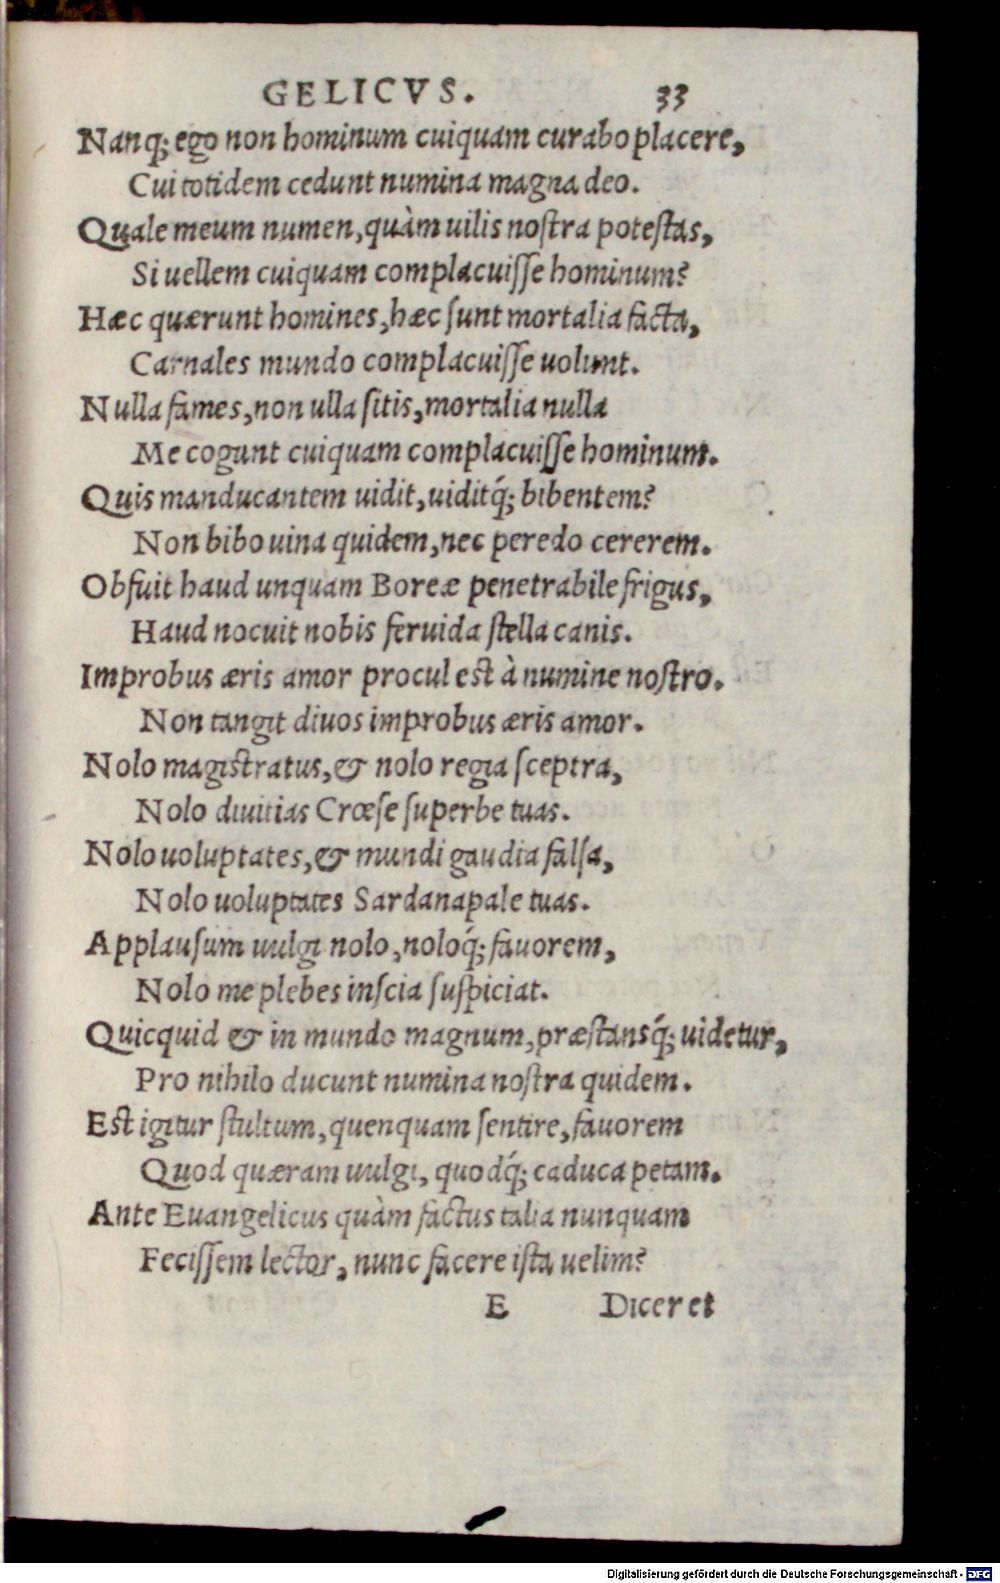 GELICVS. 33
Nanq; ego non hominum cuiquam curabo placere,
Cui totidem cedunt numina magna deo.
Quale meum numen, quàm uilis noſtra poteſtas,
Si uellem cuiquam complacuiſſe hominum?
Hæc quærunt homines, hæc ſunt mortalia facta,
Carnales mundo complacuiſſe uolunt.
Nulla fames, non ulla ſitis, mortalia nulla
Me cogunt cuiquam complacuiſſe hominum.
Quis manducantem uidit, uiditq́; bibentem?
Non bibo uina quidem, nec peredo cererem.
Obfuit haud unquam Boreæ penetrabile frigus,
Haud nocuit nobis feruida ſtella canis.
Improbus æris amor procul eſt à numine noſtro.
Non tangit diuos improbus æris amor.
Nolo magiſtratus, & nolo regia ſceptra,
Nolo diuitias Crœſe ſuperbe tuas.
Nolo uoluptates, & mundi gaudia falſa,
Nolo uoluptates Sardanapale tuas.
Applauſum uulgi nolo, noloq́; fauorem,
Nolo me plebes inſcia ſuſpiciat.
Quicquid & in mundo magnum, præſtansq́; uidetur,
Pro nihilo ducunt numina noſtra quidem.
Eſt igitur ſtultum, quenquam ſentire, fauorem
Quod quæram uulgi, quodq́; caduca petam.
Ante Euangelicus quàm factus talia nunquam
Feciſſem lector, nunc facere iſta uelim?
E Diceret
Digitalisierung gefördert durch die Deutsche Forschungsgemeinschaft - DFG